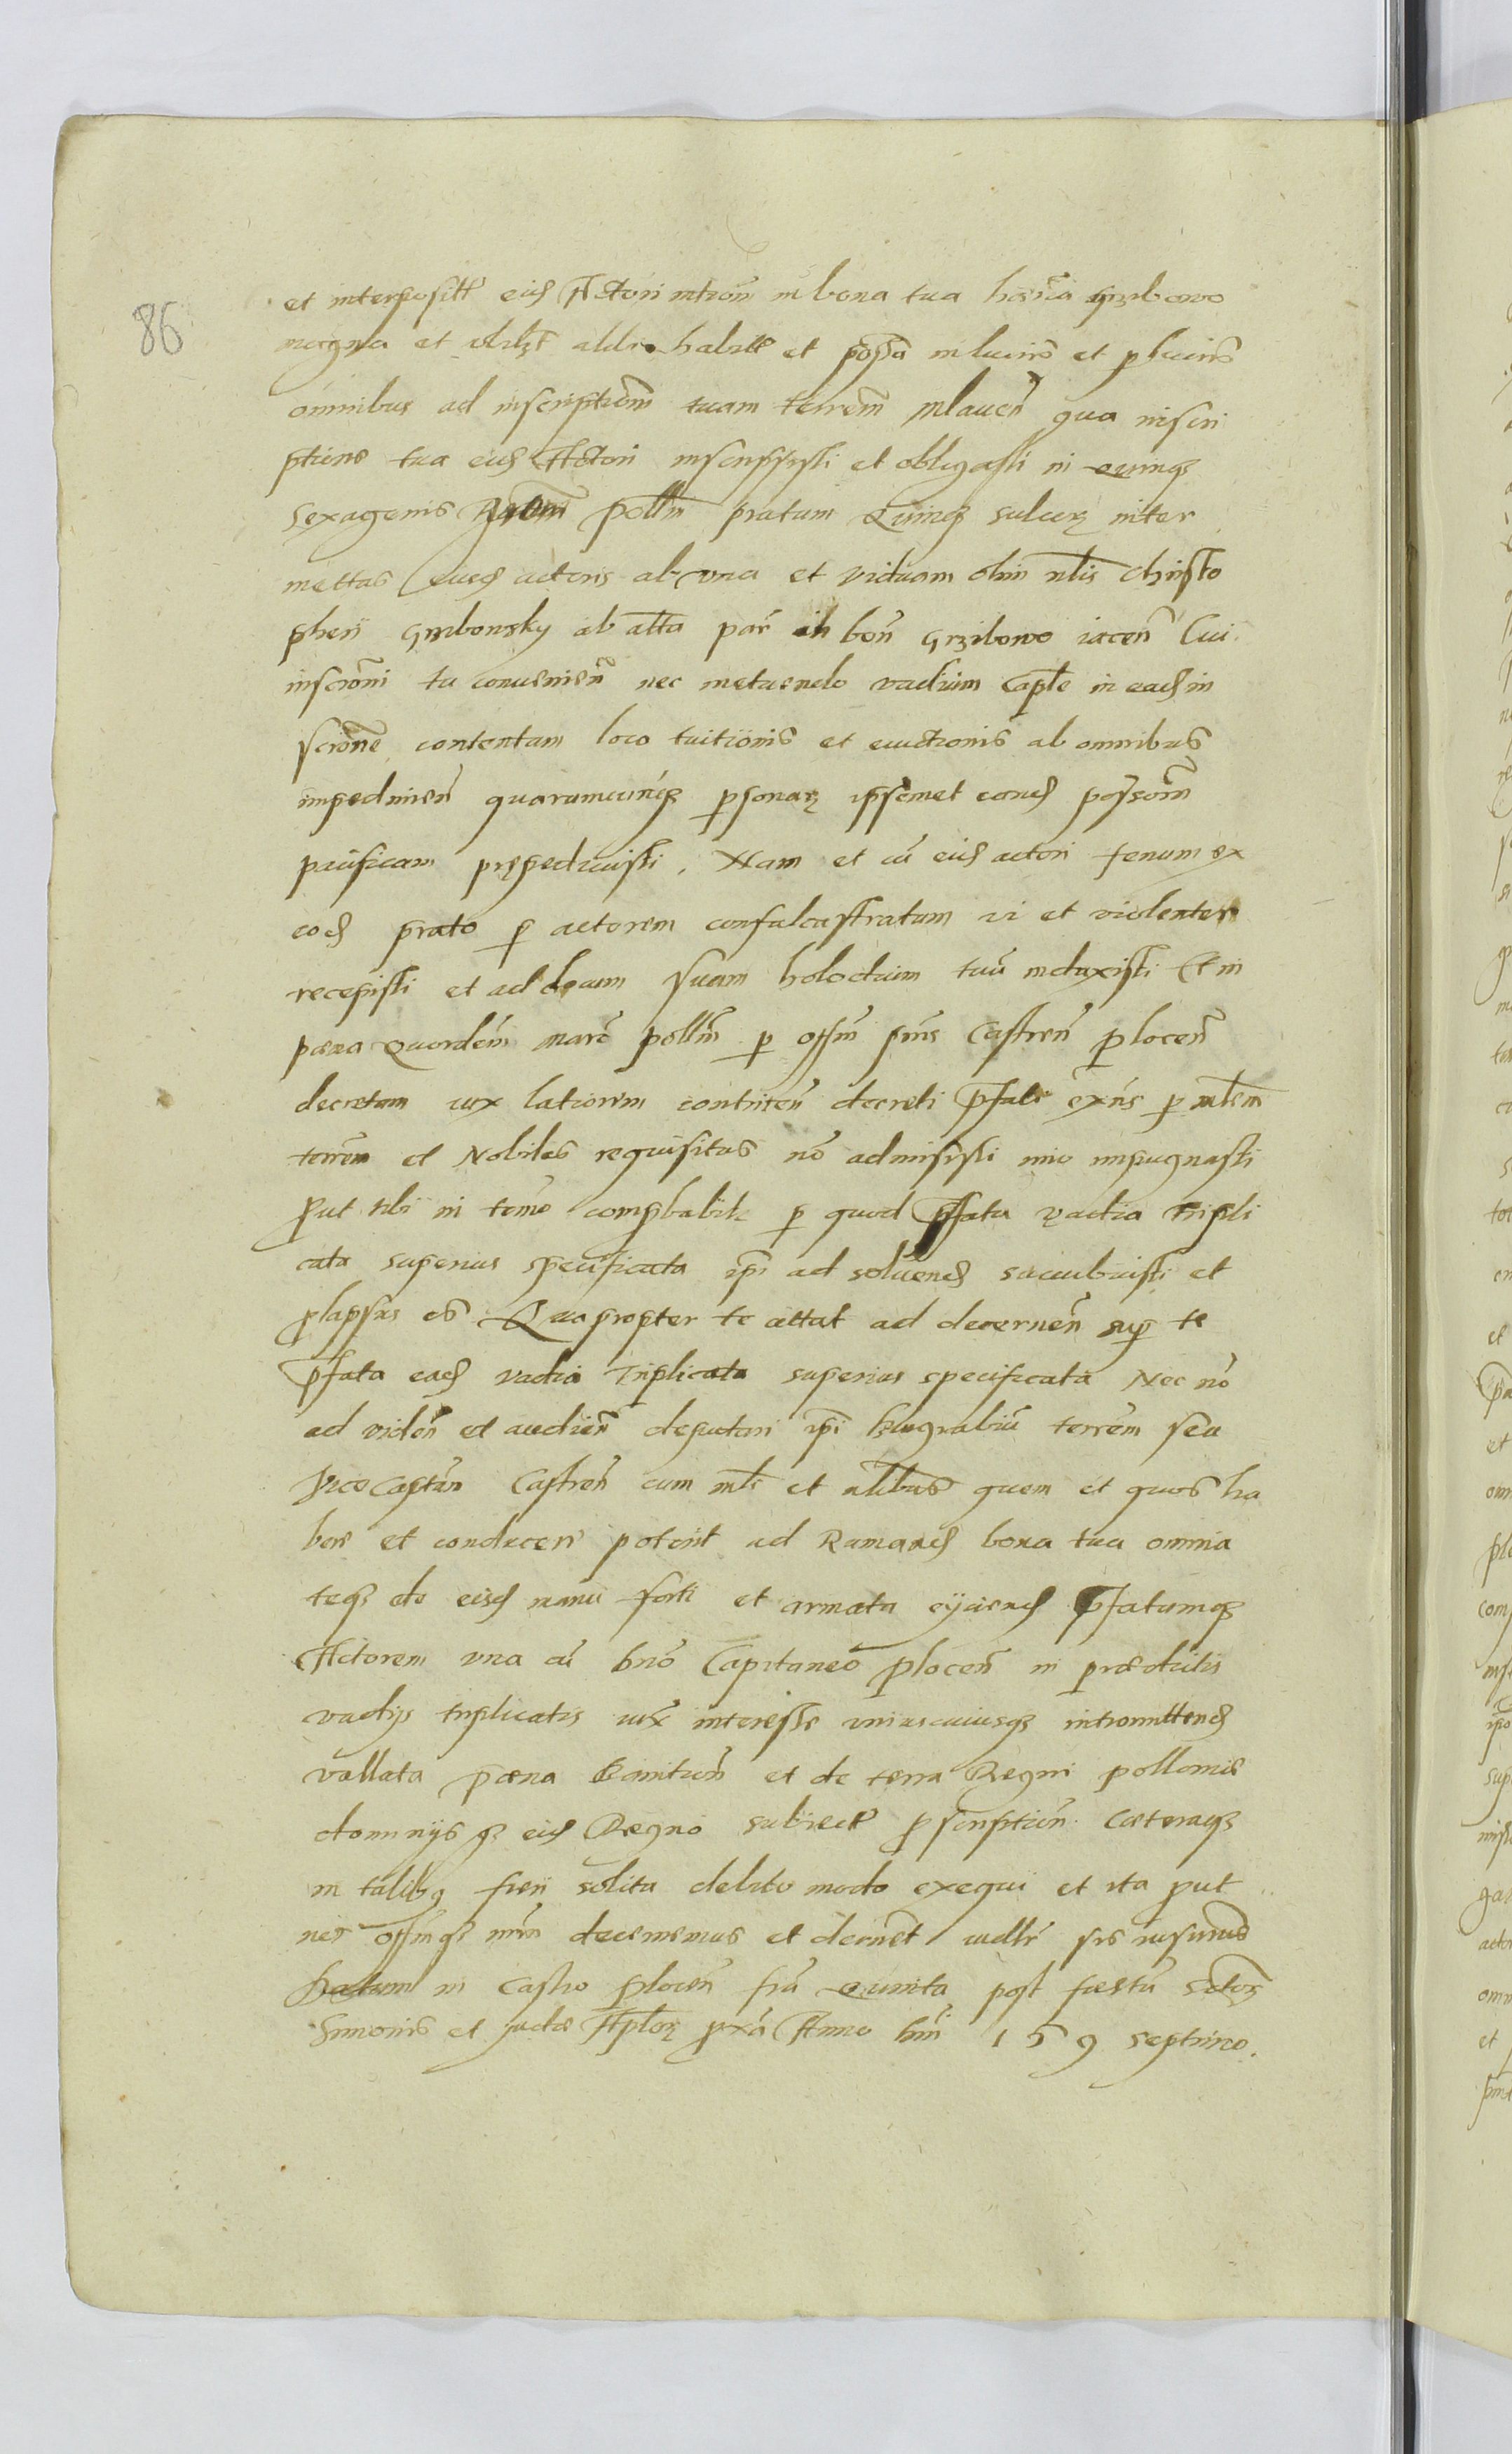 86
et interposit eiusd Actori introm in bona tua haria Grzibowo
magna et alibi habit et possa in lucris et plucris
omnibus ad inscriptiom tuam terrem Mlaven qua inscri
ptione tua eid Actori inscripsisti et obligasti in quinq
sexagenis pollm pratum Quinq sulcorz inter
mettas eiusd actoris ab una et viduam olim nlis Christo
pheri Grzbowsky ab alta par in bon Grzibowo iacen Cui
inscroni tu conuenien nec metuendo vadium Caple in ead in
scrione contentam loco tuitionis et euictionis ab omnibus
impedimen quarumcunq psonarz ipsemet eand possom
pacificam prępediuisti. Nam et cu eid actori fenum ex
eod prato p actorem confalcastratum vi et violenter
recepisti et ad doum suam holoduim tuu induxisti Et in
pæna Quordem marc pollm p offm pns Castren plocen
decretam iux lationem continen decreti pfati exns p mlem
terrem et Nobiles requisitas no admisisti imo impugnasti
put tibi in tmno compbabit p quod pfata vadia tripli
cata superius specificata ipi ad soluend succubuisti et
plapsus es Quapropter te attat ad decernen sup te
pfata ead vadia triplicata superius specificata Nec no
ad viden et audien deputari ipi burgrabiu terrem seu
Vice Captan Castren cum mli et nlibus quem et quos ha
bere et conducere poterit ad Ramand bona tua omnia
teq de eisd manu forti et armata eyciend pfatumq
Actorem una cu bno Capitaneo plocen in prædictis
vadijs triplicatis iux interesse uniuscuiusq intromittend
vallata pæna banition et de terra Regni polloniæ
dominijs q eid Regno subiect pscription Cæteraq
in talibq fieri solita debito modo exequi et ita put
nos offmq nrm decernemus et decnet iudlr sis rusurus
Datum in Castro plocen fria quinta post festu sctorz
Simonis et Judæ Aplorz pxa Anno dni 159 septimo.